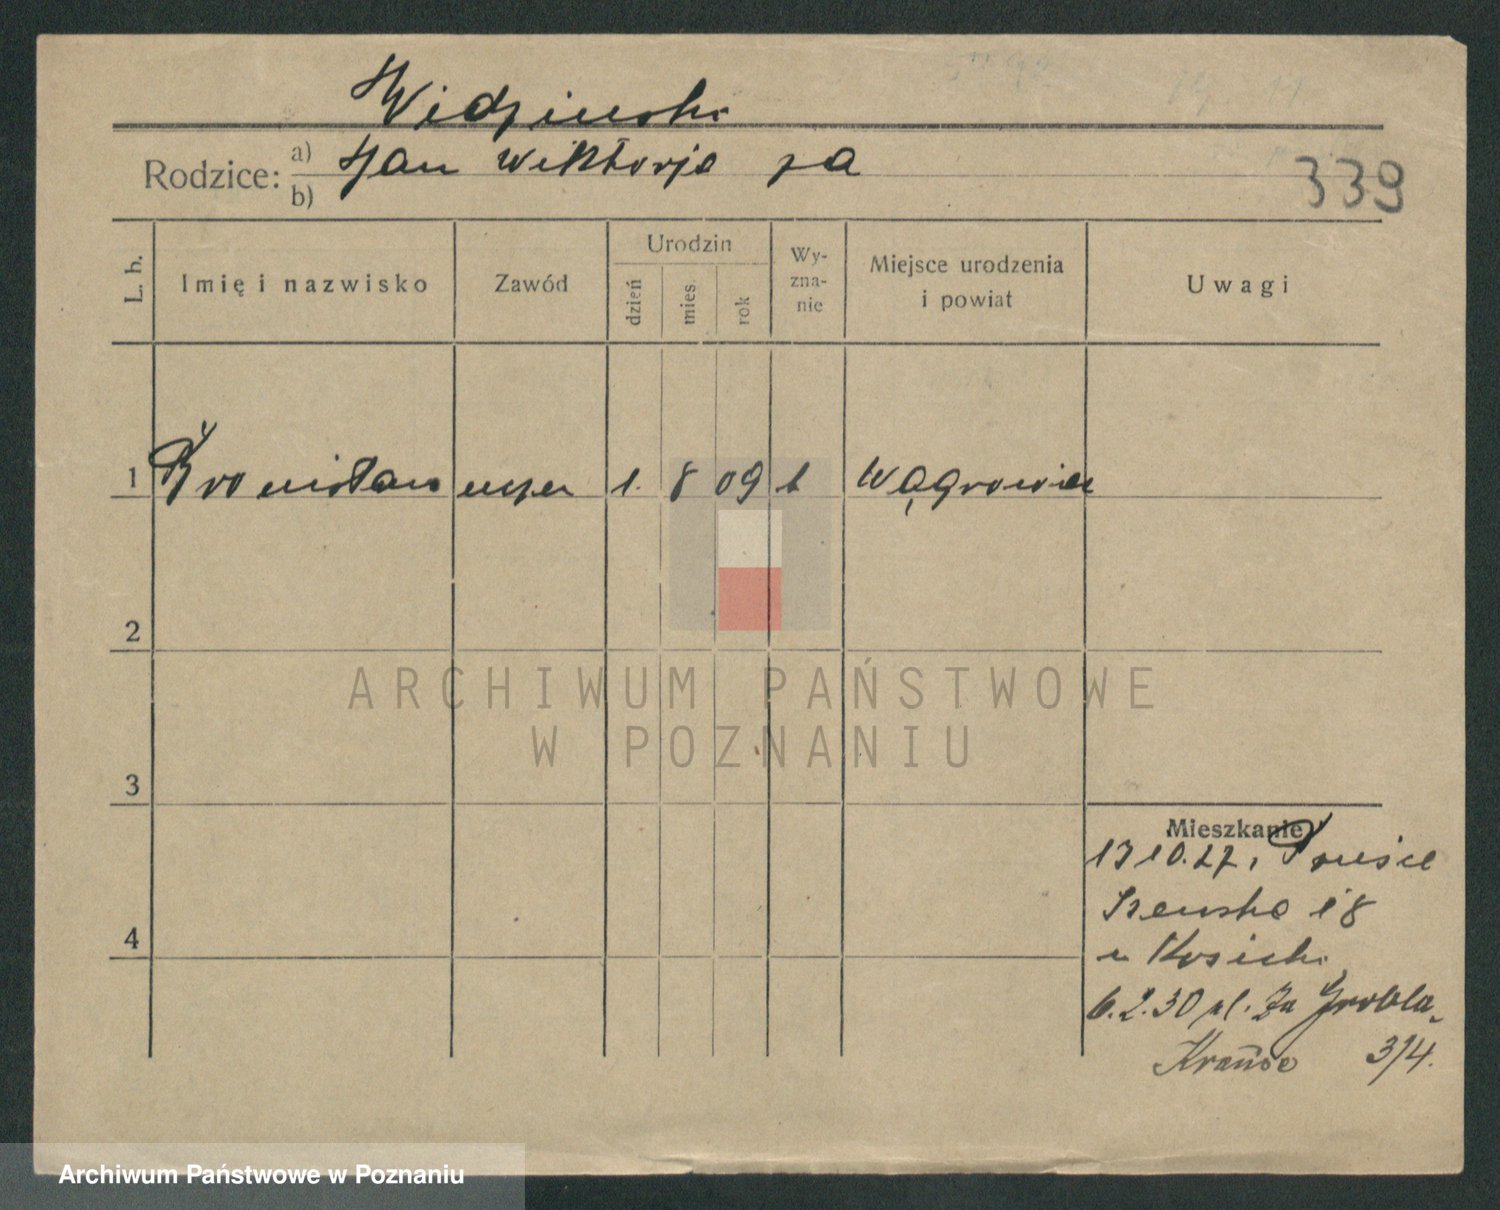 Widziński
Rodzice: a) Jan Wiktorja za
b)
339
L. b.
Imię i nazwisko
Zawód
Urodzin
dzień
mies.
rok
Wy-
zna-
nie
Miejsce urodzenia
i powiat
Uwagi
1 Bronisław uczeń 1. 8 09 k Wągrowiec
2
3
4
Mieszkanie
13 10.27,
18
u Kosicki
6.2.30 pl. Za Groblą
Krauze 3/4.
ARCHIWUM PAŃSTWOWE
W POZNANIU
Archiwum Państwowe w Poznaniu